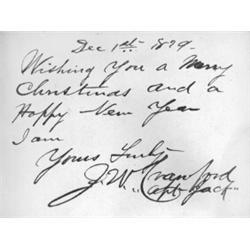 Dec 1st 1879.
Wishing You a Merry
Christmas and a
Happy New Year
I am
Yours Truly
J. W. Crawford
"Capt Jack"